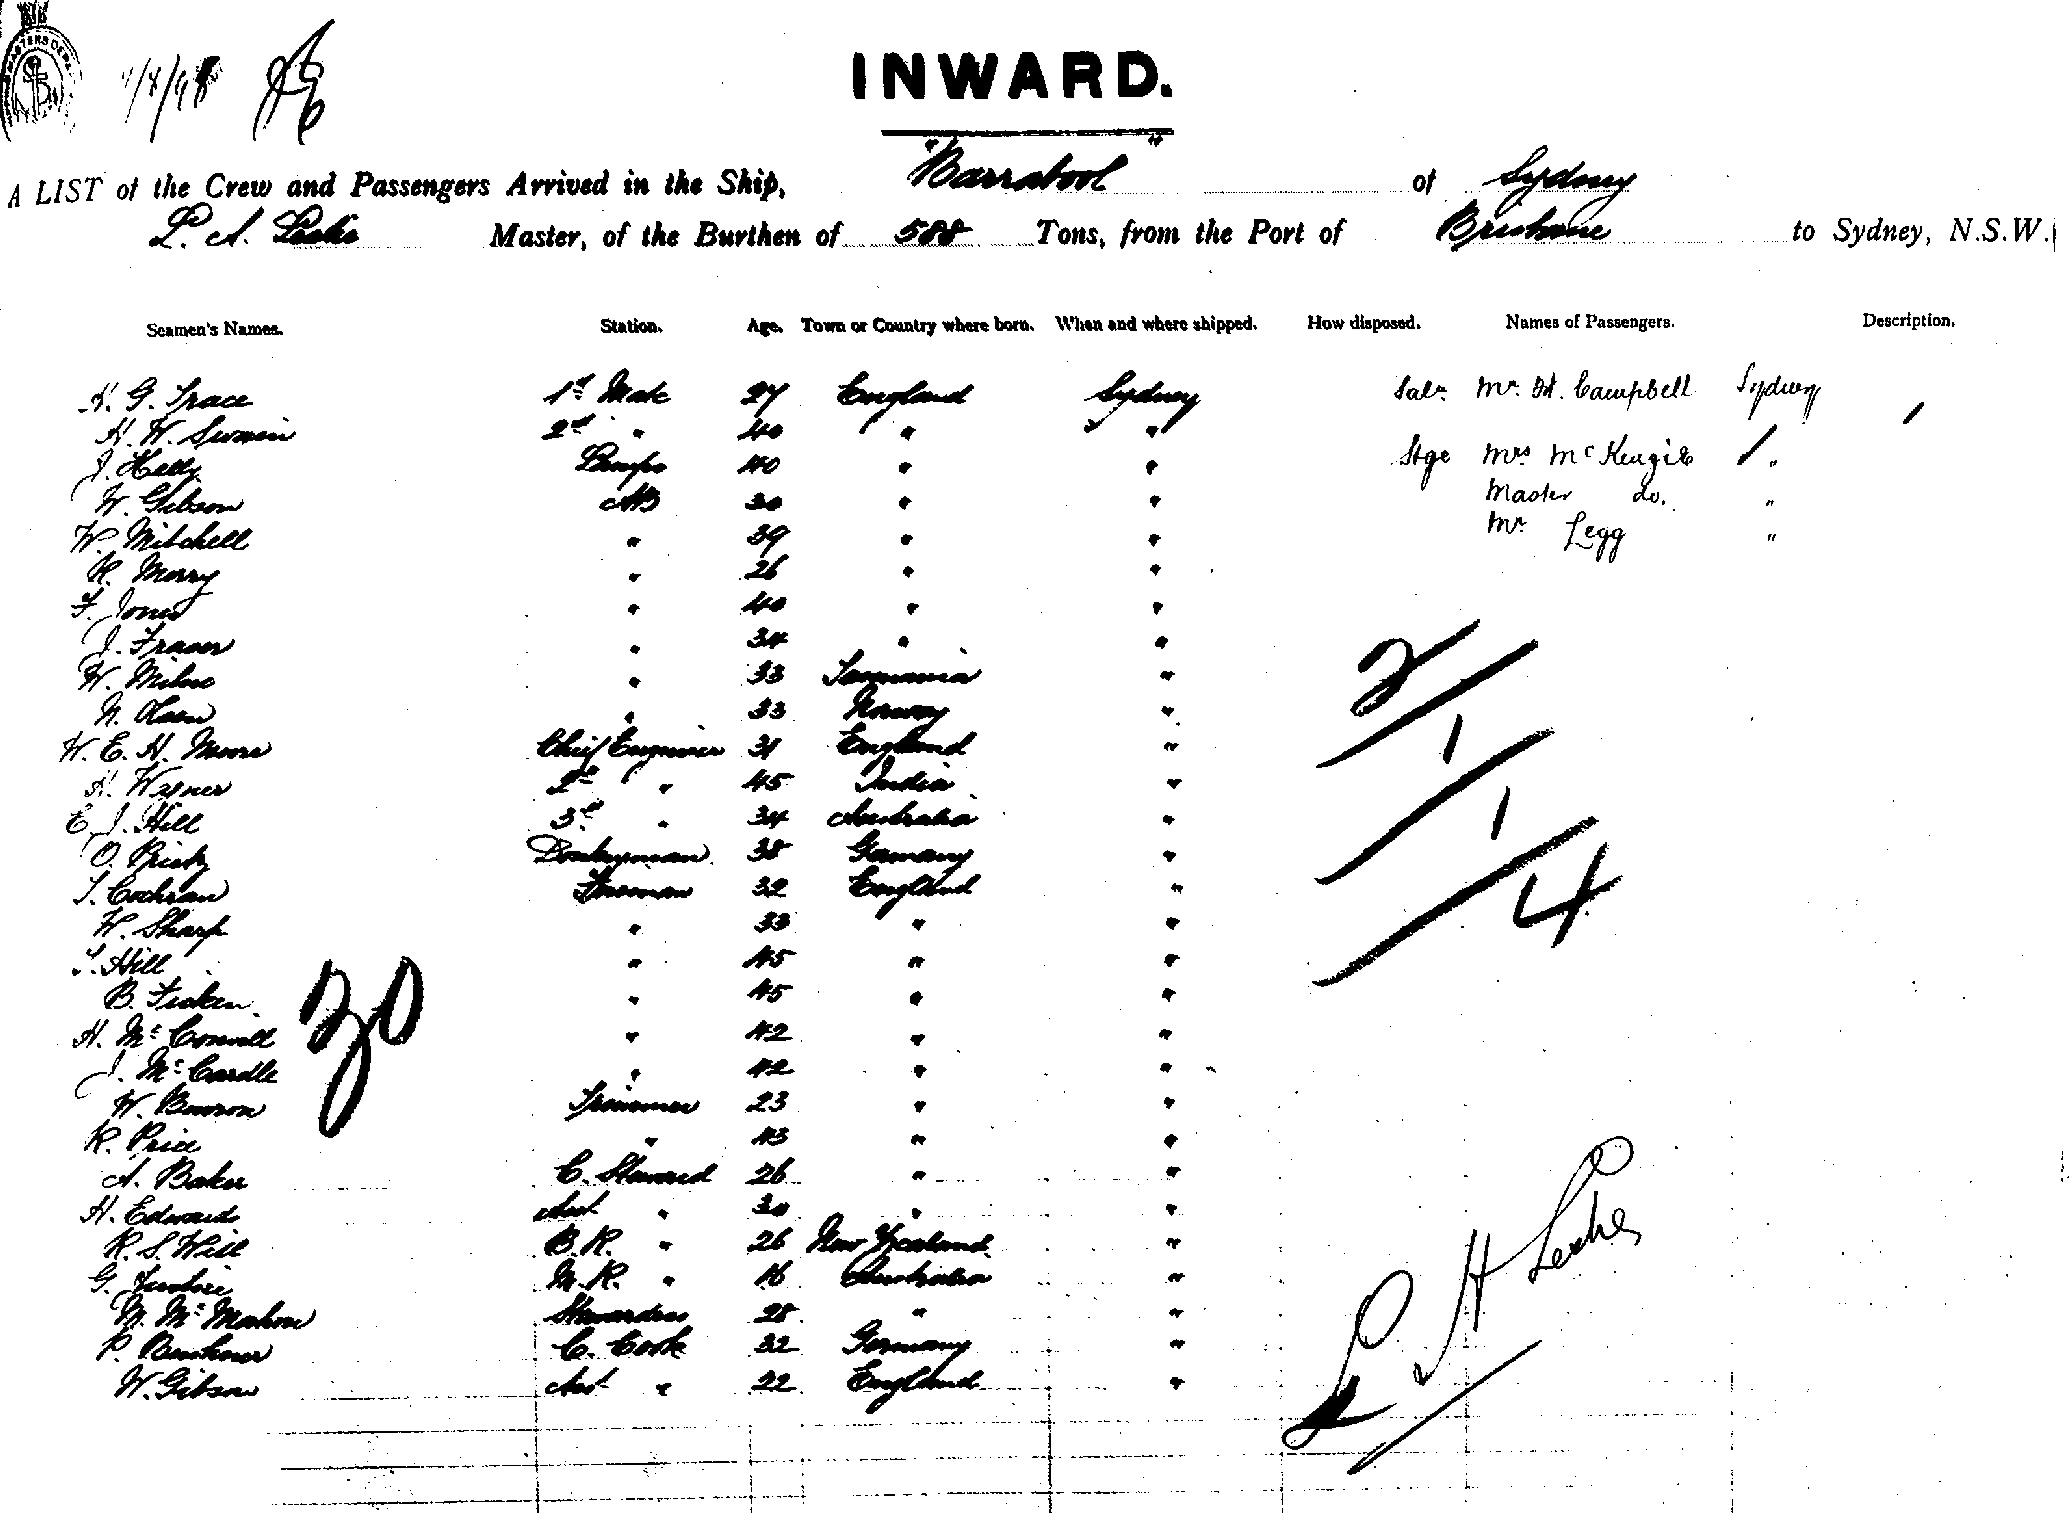 INWARD.
A LIST of the Crew and Passengers Arrived in the Ship, "Barrabool" of Sydney
L. A. Leeke Master, of the Burthen of 588 Tons, from the Port of Brisbane to Sydney, N.S.W.
Seamen's Names. Station. Age. Town or Country where born. When and where shipped. How disposed. Names of Passengers. Description.
H. G. Trace 1st Mate 27 England Sydney Saln Mr. H. Campbell Sydney
H. W. Swain 2nd " 40 " "
J. Kelly Lamps 40 " " Stge Mrs McKenzie "
W. Gibson AB 30 " " Master do. "
W. Mitchell " 39 " " Mr Legg "
R. Merry " 26 " "
F. Jones " 40 " "
J. Fraser " 34 " "
W. Milne " 33 Tasmania "
N. Olsen " 33 Norway "
W. E. H. Moore Chief Engineer 31 England "
H. Wagner 2nd " 45 India "
E. J. Hill 3rd " 34 Australia "
O. Donkeyman 38 Germany "
T. Cochran Fireman 32 England "
W. Sharp " 33 " "
T. Hill " 45 " "
B. " 45 " "
H. McConnell " 42 " "
J. McCardle " 42 " "
W. Trimmer 23 " "
R. Price " 43 " "
A. Baker C. Steward 26 " "
H. Edwards Asst " 30 " "
R. S. Will B.R. " 26 New Zealand "
G. M.R. " 16 Australia "
M. McMahon Stewardess 28 " "
P. C. Cook 32 Germany "
W. Gibson Asst " 22 England "
30
2
1
1
4
L A Leeke